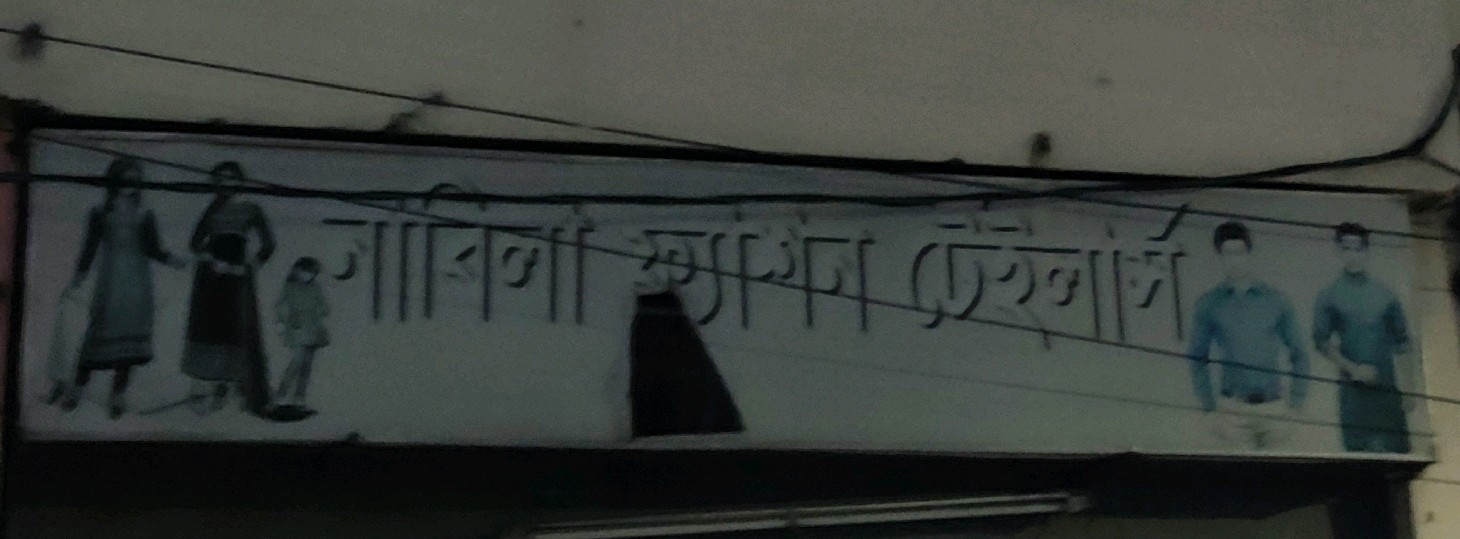 ফ্যাশন টেইলার্স